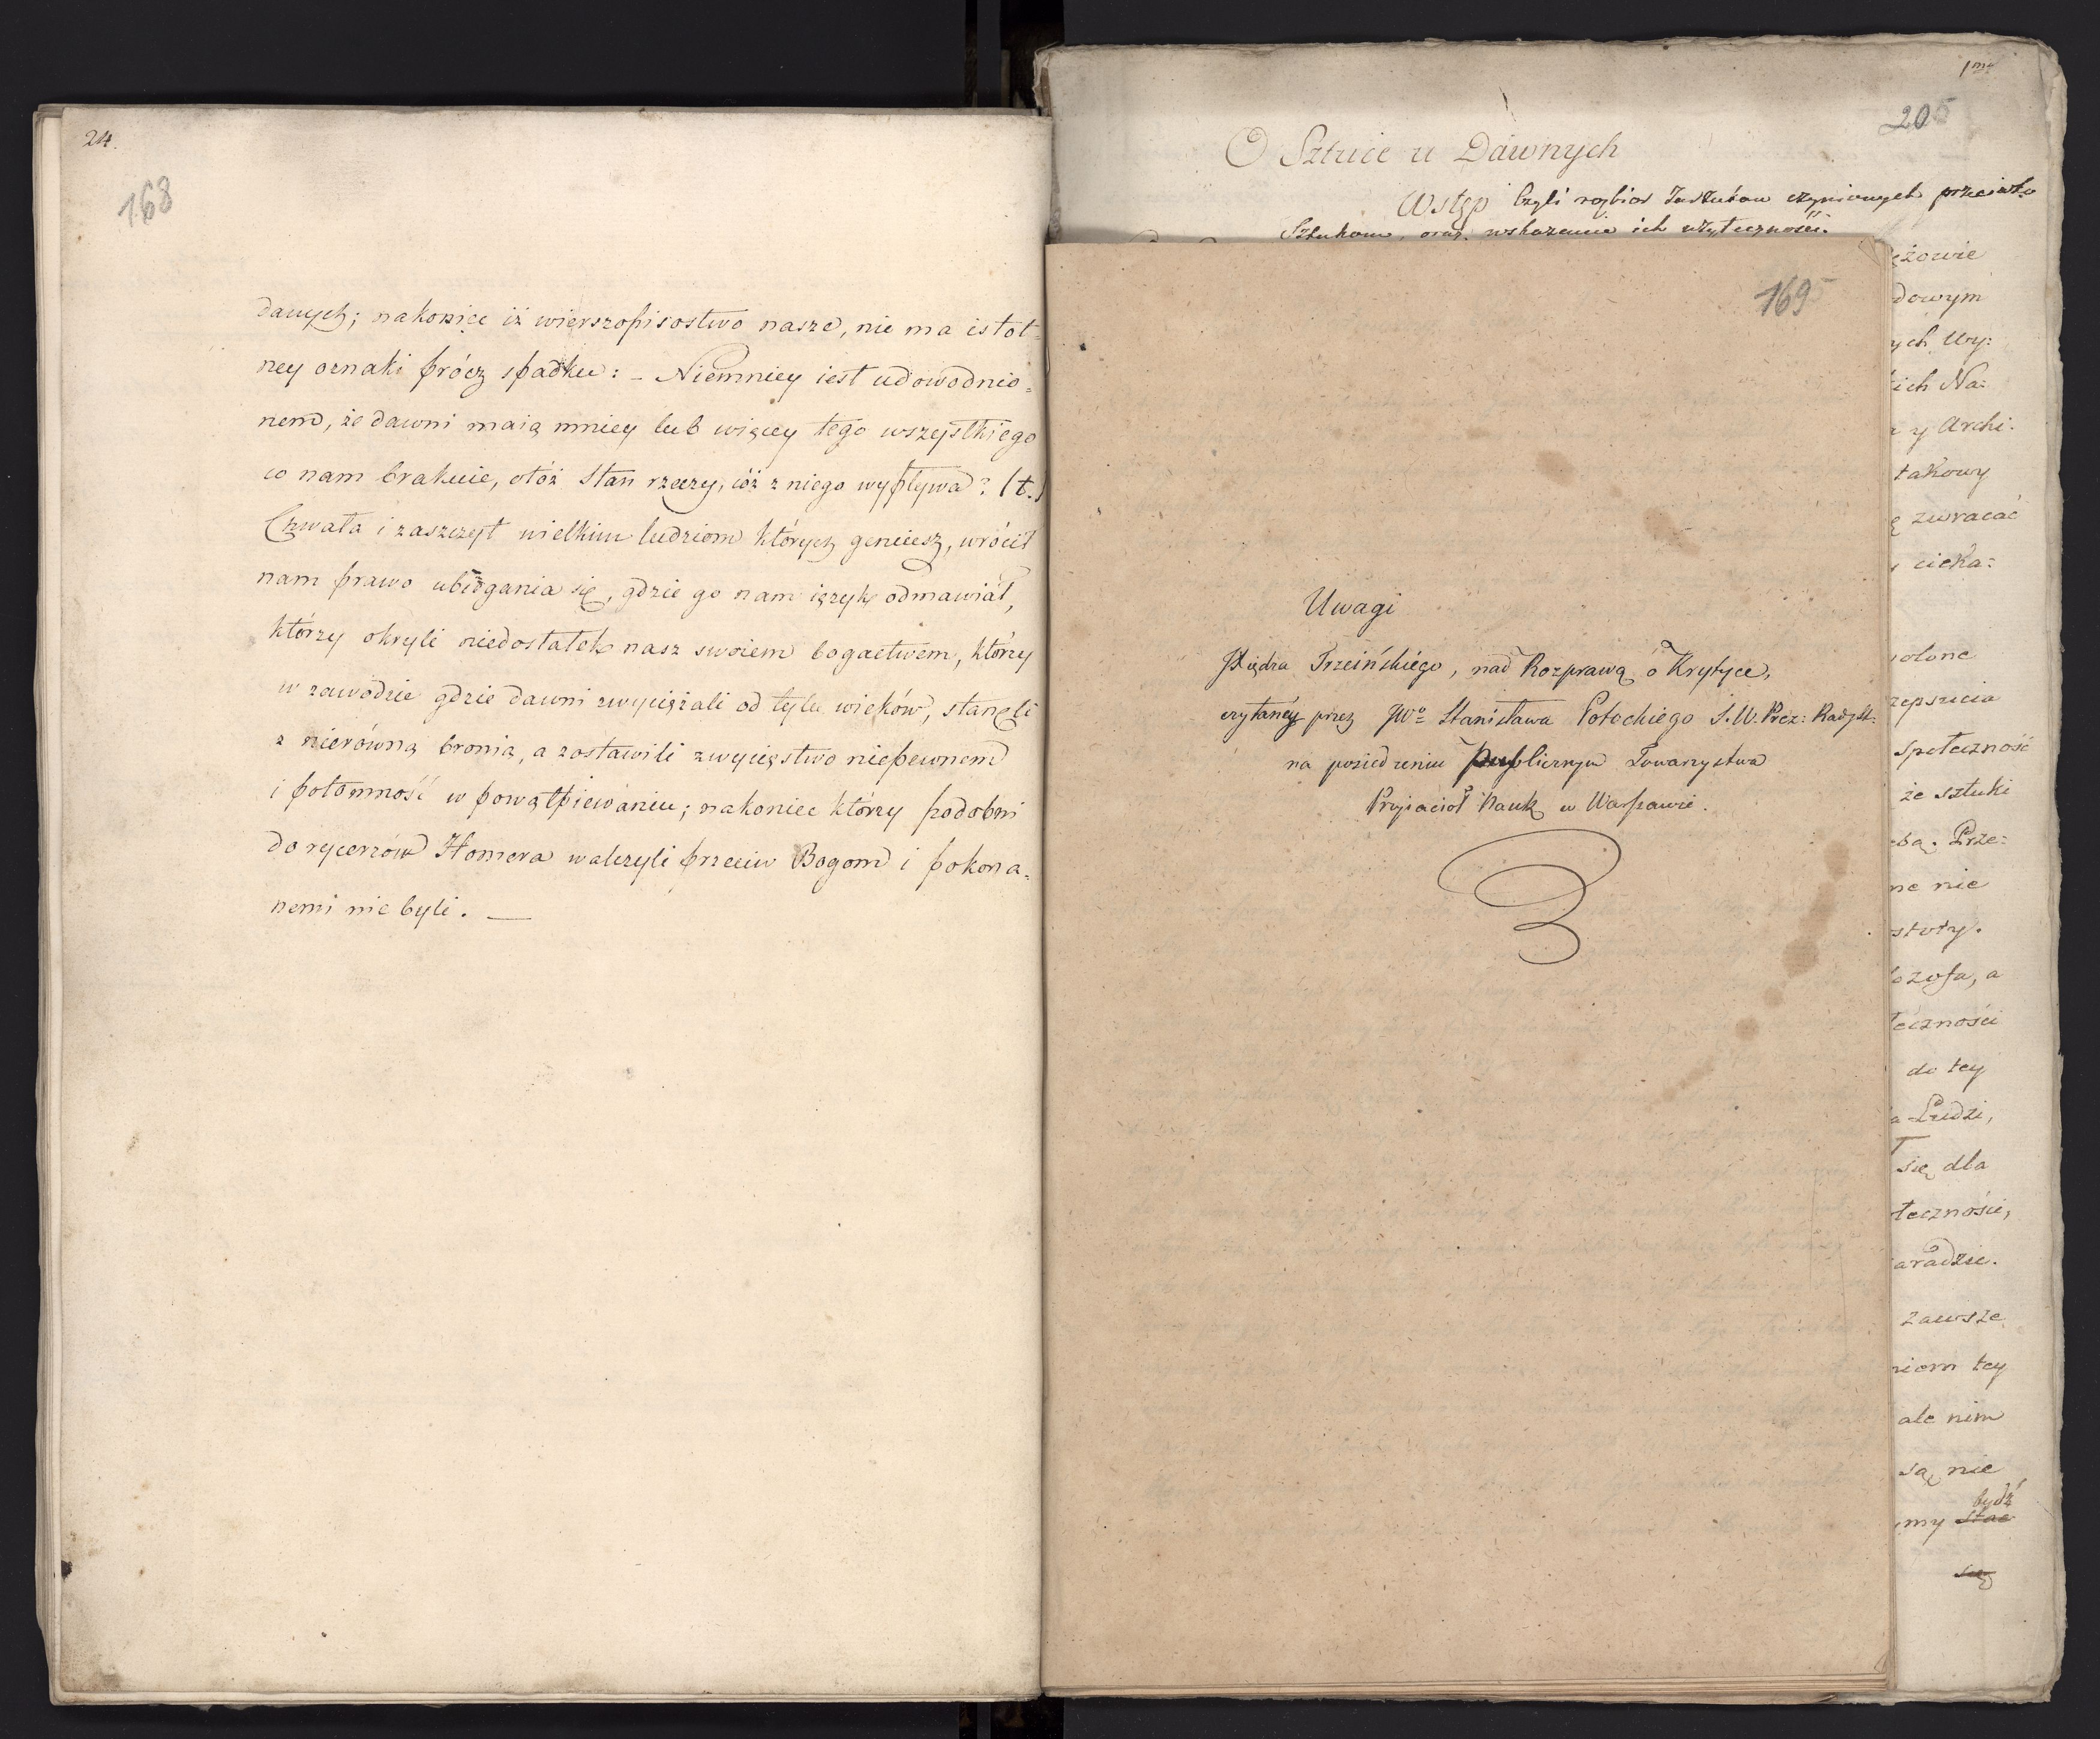 24.
168
danych; nakoniec iż wierszopisostwo nasze, nie ma istot-
ney oznaki prócz spadku: - Niemniey iest udowodnio-
nem, że dawni maią mniey lub więcey tego wszystkiego
co nam brakuie, otóż stan rzeczy, cóż z niego wypływa? (t.)
Chwała i zaszczyt wielkim ludziom których geniusz, wrócił
nam prawo ubiegania się, gdzie go nam ięzyk odmawiał,
którzy okryli niedostatek nasz swoiem bogactwem, którzy
w zawodzie gdzie dawni zwyciężali od tylu wieków, stanęli
z nierówną bronią, a zostawili zwycięstwo niepewnem
i potomność w powątpiewaniu; nakoniec którzy podobni
do rycerzów Homera walczyli przeciw Bogom i pokona-
nemi nie byli. —
1mo
205
O Sztuce u Dawnych
Wstęp Czyli rozbior zarzutow czynionych przeciwko
Sztukom, oraz wskazanie ich użyteczności.
169
Uwagi
Xiędza Trzcińskiego, nad Rozprawą o Krytyce,
czytaney przez JWo Stanisława Potockiego S. W. Prez: Rady St:
na posiedzeniu publicznym Towarzystwa
Przyiacioł Nauk w Warszawie.
ężowie
dowym
ych Wy:
ich Na:
y Archi.
takowy
ę zwracać
cieka:
olone
zepsucia
społeczność
że sztuki
bą. Prze:
ne nie
stoty.
ozofa, a
eczności
do tey
a Ludzi,
się dla
łeczności,
aradzie.
zawsze
niem tey
ale nim
są nie
bydź
my stać
się